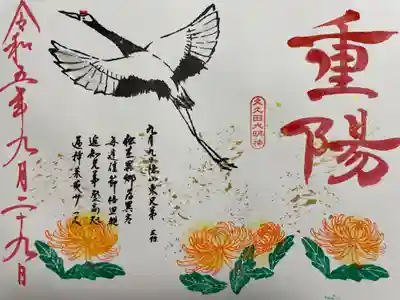 重陽
九月九日憶山東兄弟 王維
独在異郷為異客
毎逢佳節倍思親
遥知兄弟登高処
遍挿茱萸少一人
令和五年九月二十九日